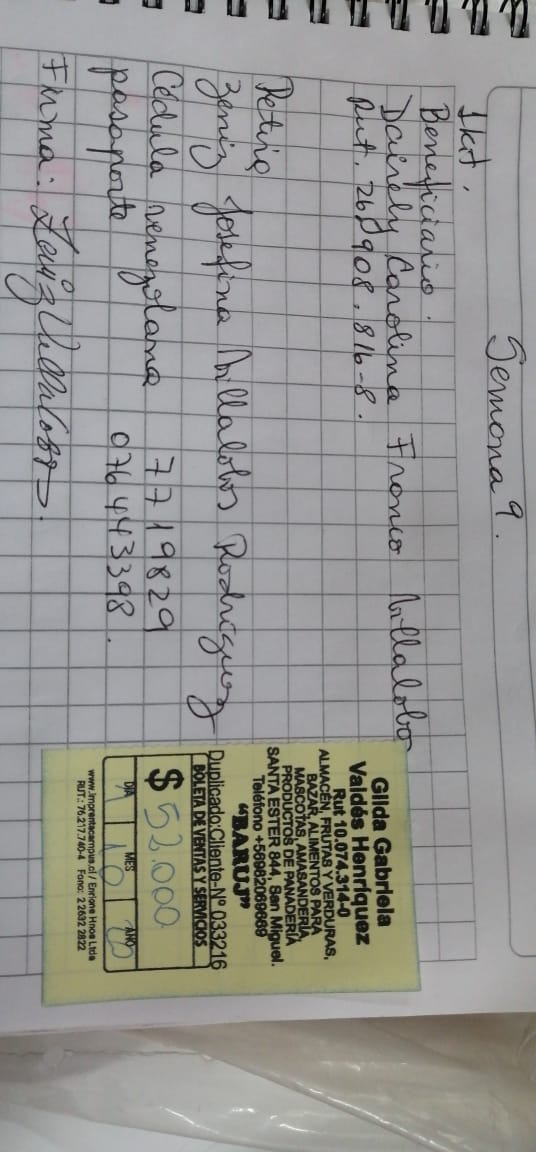 Semana 9.
1 kit.
Beneficiario.
Dairely Carolina Franco Villalobo
Rut. 26.908.816-8.
Retira
Zeniz Josefina Villalobos Rodriguez
Cédula venezolana 7719829
pasaporte 076443398.
Firma: Zeniz Villalobos.
Gilda Gabriela
Valdés Henríquez
Rut 10.074.314-0
ALMACÉN, FRUTAS Y VERDURAS,
BAZAR, ALIMENTOS PARA
MASCOTAS, AMASANDERÍA,
PRODUCTOS DE PANADERÍA
SANTA ESTER 844, San Miguel.
Teléfono +56982069669
"BARUJ"
Duplicado:Cliente-Nº 033216
BOLETA DE VENTAS Y SERVICIOS
$ 52.000
DIA MES AÑO
10 20
www.imprentacampus.cl / Enrione Hnos Ltda
RUT.: 76.217.740-4 Fono: 2 2632 2822